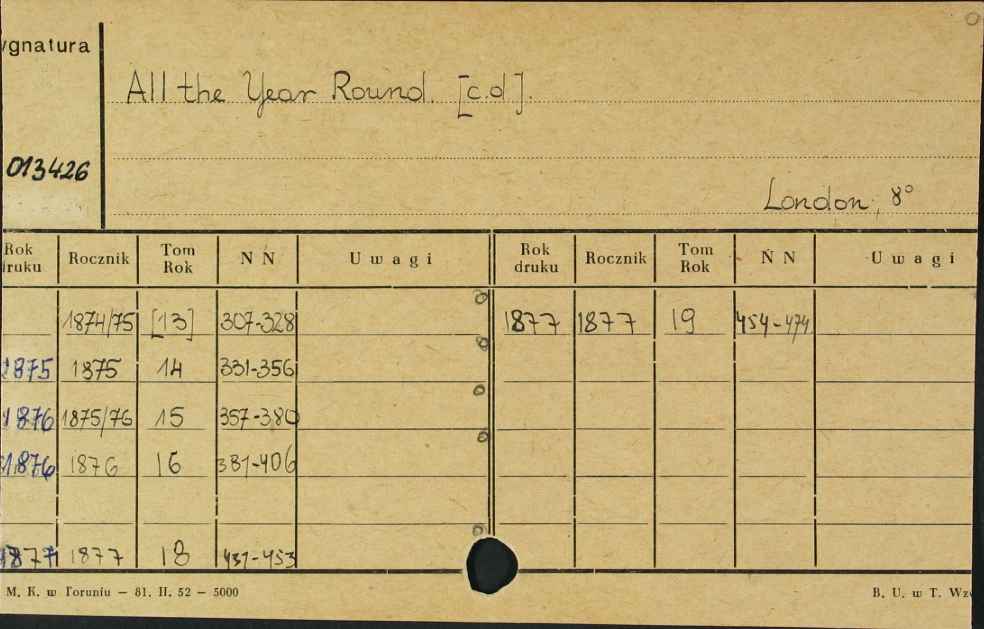 ygnatura
All the Year Round. [c.d].
013426
London, 8°
Rok druku Rocznik Tom Rok N N U w a g i Rok druku Rocznik Tom Rok N N U w a g i
1874/75 [13] 307-328 1877 1877 19 454-474
1875 1875 14 331-356
1876 1875/76 15 357-380
1876 1876 16 381-406
1877 1877 18 431-453
M. K. w Toruniu — 81. II. 52 — 5000 B. U. w T. Wzo